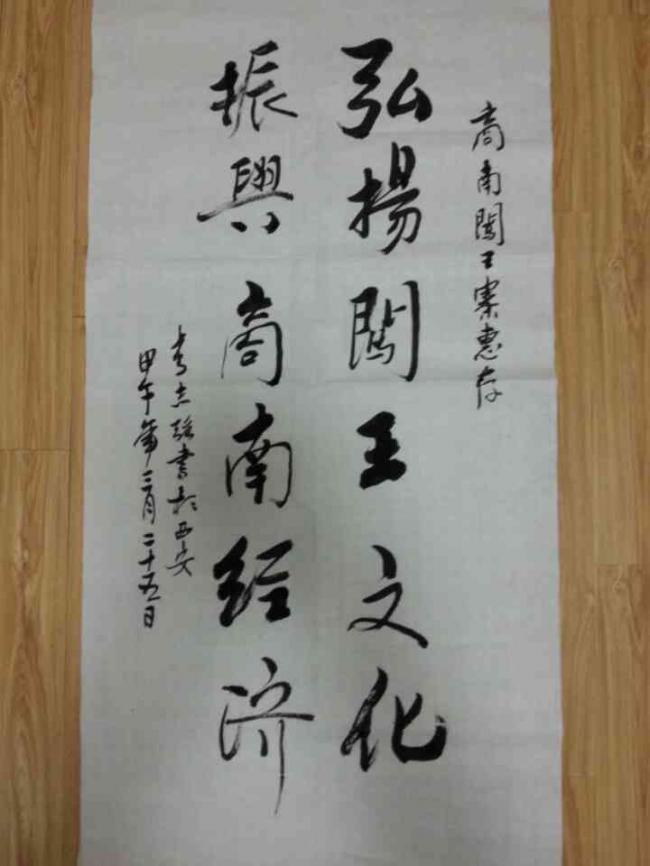 商南闖王寨惠存
弘揚闖王文化
振興商南經济
志强書於西安
甲午年三月二十五日